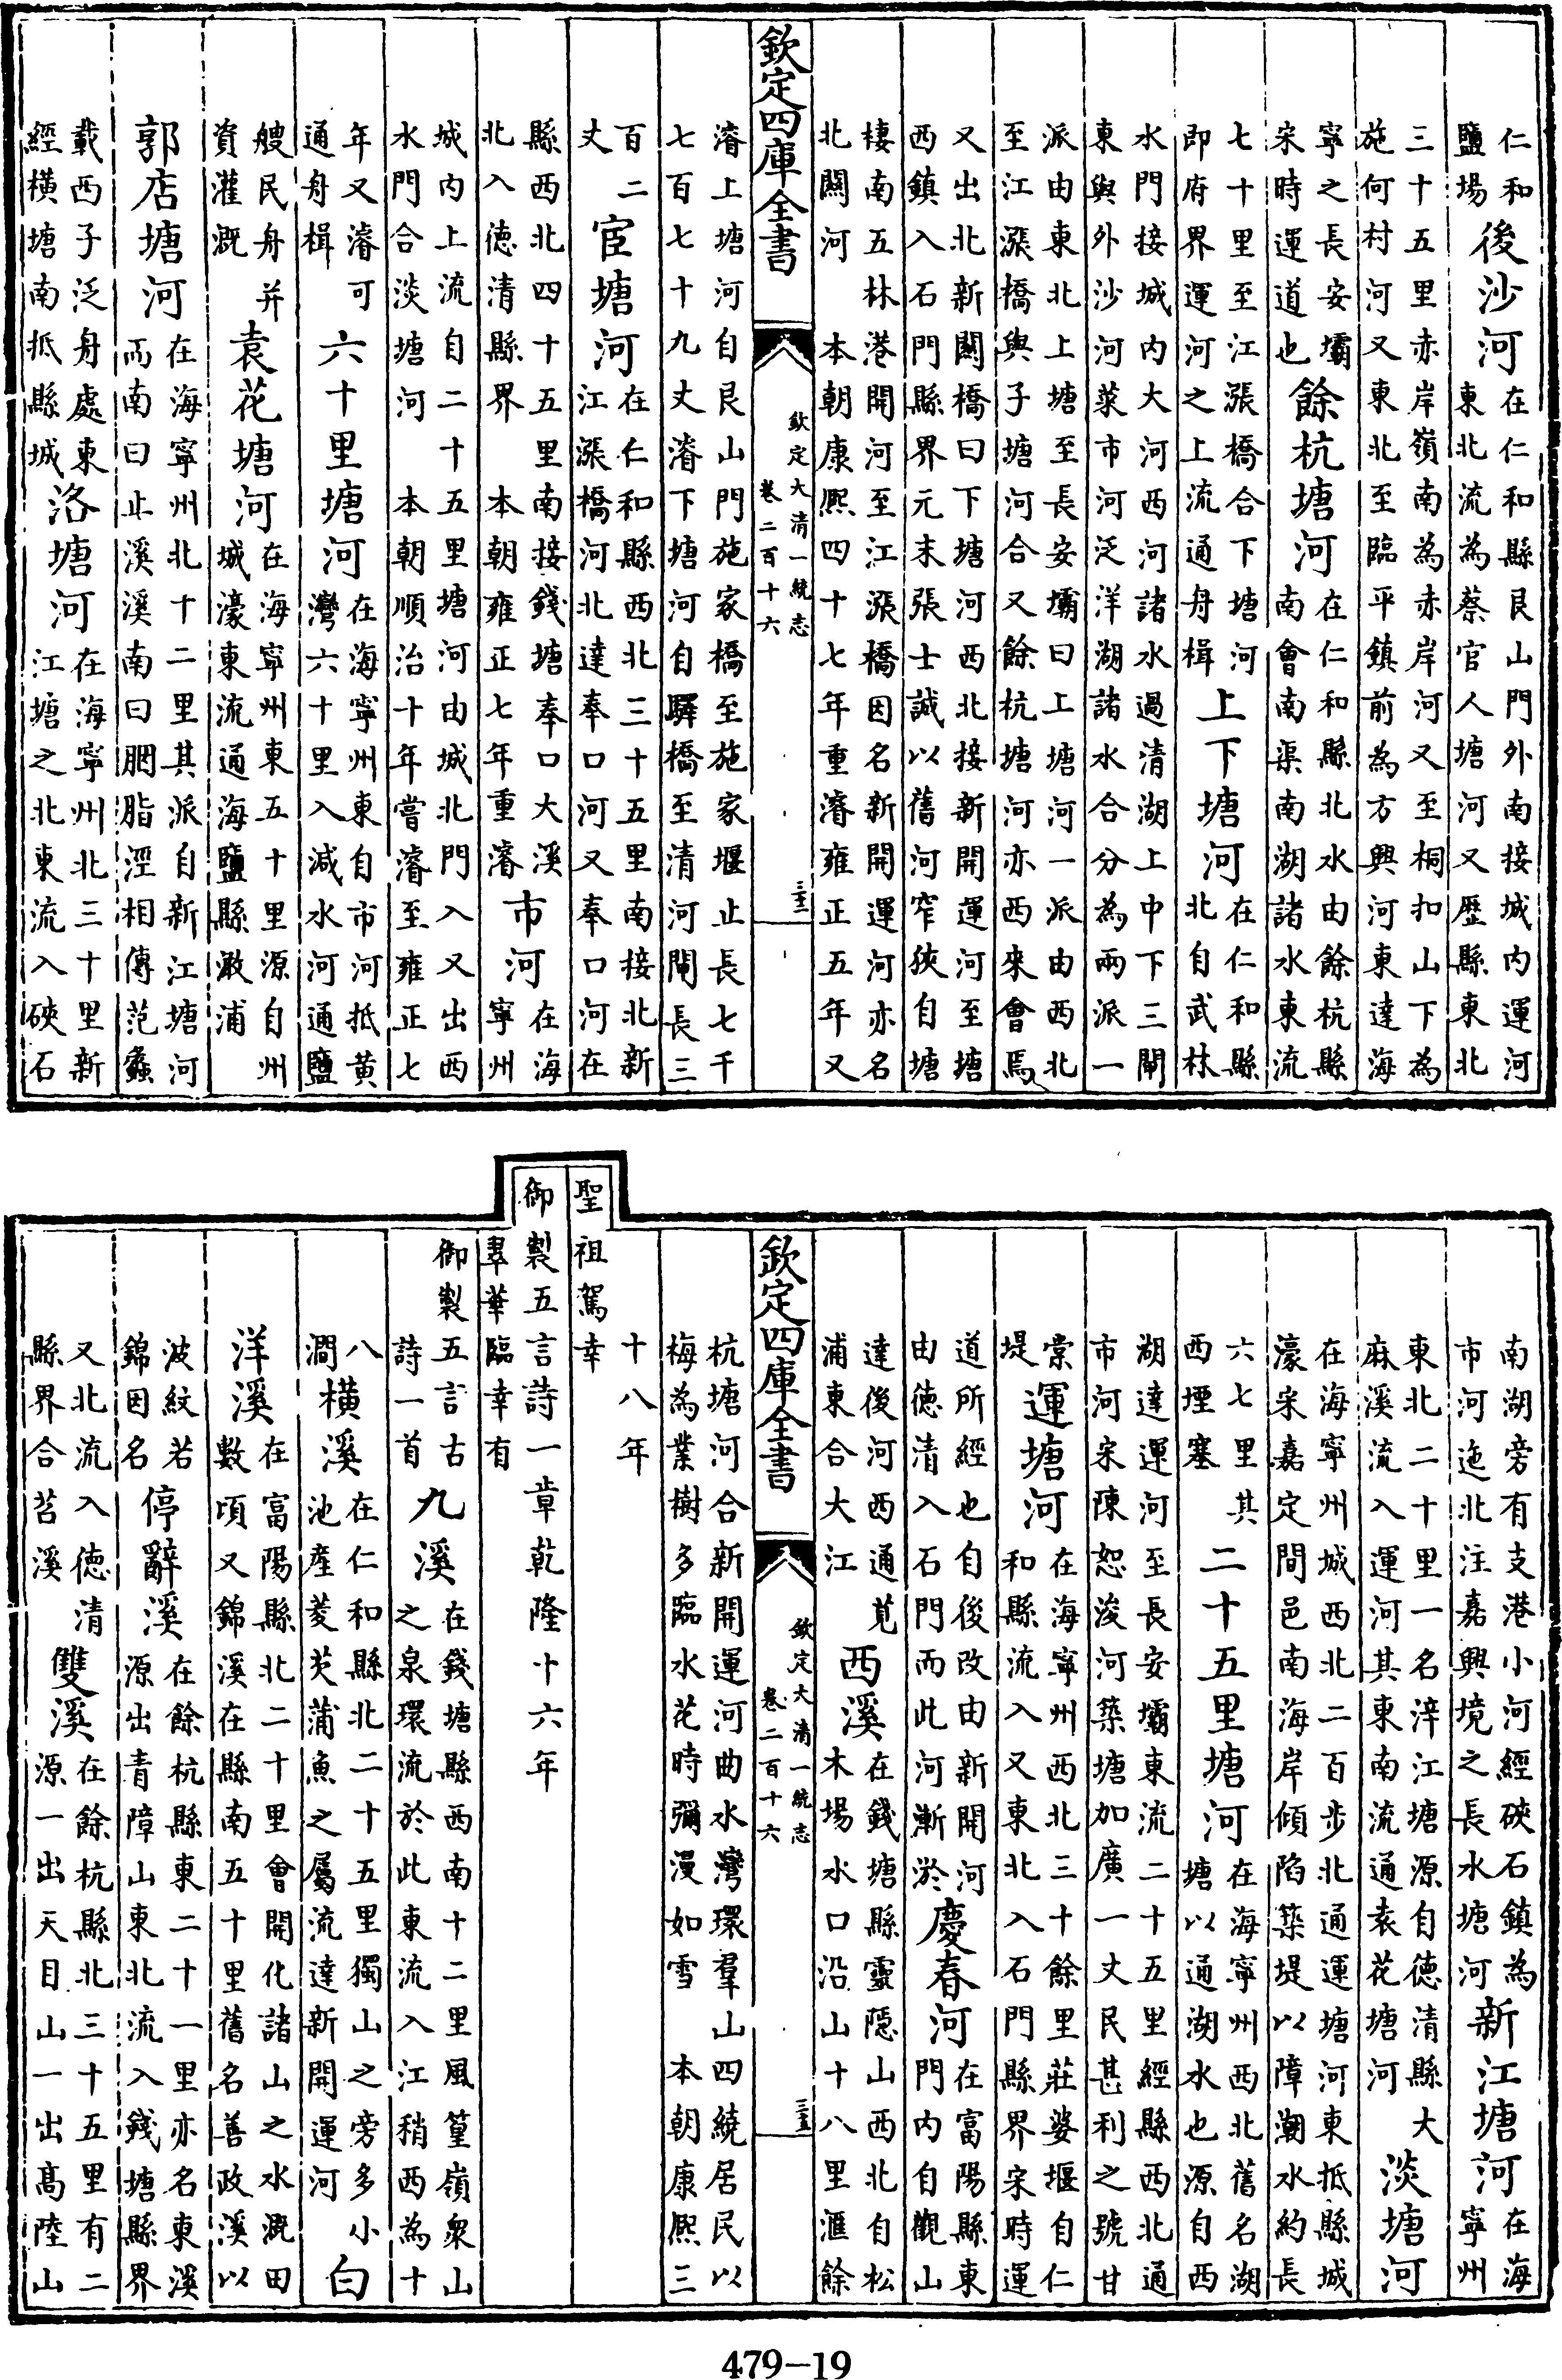 仁和鹽場後沙河在仁和縣艮山門外南接城内運河東北流為蔡官人塘河又歷縣東北
三十五里赤岸嶺南為赤岸河又至桐扣山下為施何村河又東北至臨平鎮前為方興河東達海
寧之長安壩宋時運道也餘杭塘河在仁和縣北水由餘杭縣南會南渠南湖諸水東流
七十里至江漲橋合下塘河即府界運河之上流通舟楫上下塘河在仁和縣北自武林
水門接城内大河西河諸水過清湖上中下三閘東與外沙河菜市河泛洋湖諸水合分為兩派一
派由東北上塘至長安壩曰上塘河一派由西北至江漲橋與子塘河合又餘杭塘河亦西來會焉
又出北新關橋曰下塘河西北接新開運河至塘西鎮入石門縣界元末張士誠以舊河窄狹自塘
棲南五林港開河至江漲橋因名新開運河亦名北關河 本朝康熙四十七年重濬雍正五年又
欽定四庫全書
欽定大清一統志
卷二百十六
濬上塘河自艮山門施家橋至施家堰止長七千七百七十九丈濬下塘河自驛橋至清河閘長三
百二丈宦塘河在仁和縣西北三十五里南接北新江漲橋河北達奉口河又奉口河在
縣西北四十五里南接錢塘奉口大溪北入德清縣界 本朝雍正七年重濬市河在海寧州
城内上流自二十五里塘河由城北門入又出西水門合淡塘河 本朝順治十年嘗濬至雍正七
年又濬可通舟楫六十里塘河在海寧州東自市河抵黄灣六十里入減水河通鹽
艘民舟并資灌溉袁花塘河在海寧州東五十里源自州城濠東流通海鹽縣澉浦
郭店塘河在海寧州北十二里其派自新江塘河而南曰止溪溪南曰胭脂涇相傳范蠡
載西子泛舟處東經橫塘南抵縣城洛塘河在海寧州北三十里新江塘之北東流入硤石
南湖旁有支港小河經硤石鎮為市河迤北注嘉興境之長水塘河新江塘河在海寧州
東北二十里一名滓江塘源自德清縣大麻溪流入運河其東南流通袁花塘河淡塘河
在海寧州城西北二百步北通運塘河東抵縣城濠宋嘉定間邑南海岸傾陷築堤以障潮水約長
六七里其西堙塞二十五里塘河在海寧州西北舊名湖塘以通湖水也源自西
湖達運河至長安壩東流二十五里經縣西北通市河宋陳恕浚河築塘加廣一丈民甚利之號甘
棠堤運塘河在海寧州西北三十餘里莊婆堰自仁和縣流入又東北入石門縣界宋時運
道所經也自後改由新開河由德清入石門而此河漸淤慶春河在富陽縣東門内自觀山
達後河西通莧浦東合大江西溪在錢塘縣靈隱山西北自松木場水口沿山十八里滙餘
欽定四庫全書
欽定大清一統志
卷二百十六
杭塘河合新開運河曲水灣環羣山四繞居民以梅為業樹多臨水花時彌漫如雪 本朝康熙三
十八年
聖祖駕幸
御製五言詩一章乾隆十六年
翠華臨幸有
御製五言古詩一首九溪在錢塘縣西南十二里風篁嶺衆山之泉環流於此東流入江稍西為十
八澗橫溪在仁和縣北二十五里獨山之旁多小池產菱芡蒲魚之屬流達新開運河白
洋溪在富陽縣北二十里會開化諸山之水溉田數頃又錦溪在縣南五十里舊名善政溪以
波紋若錦因名停辭溪在餘杭縣東二十一里亦名東溪源出青障山東北流入錢塘縣界
又北流入德清縣界合苕溪雙溪在餘杭縣北三十五里有二源一出天目山一出高陸山
479-19